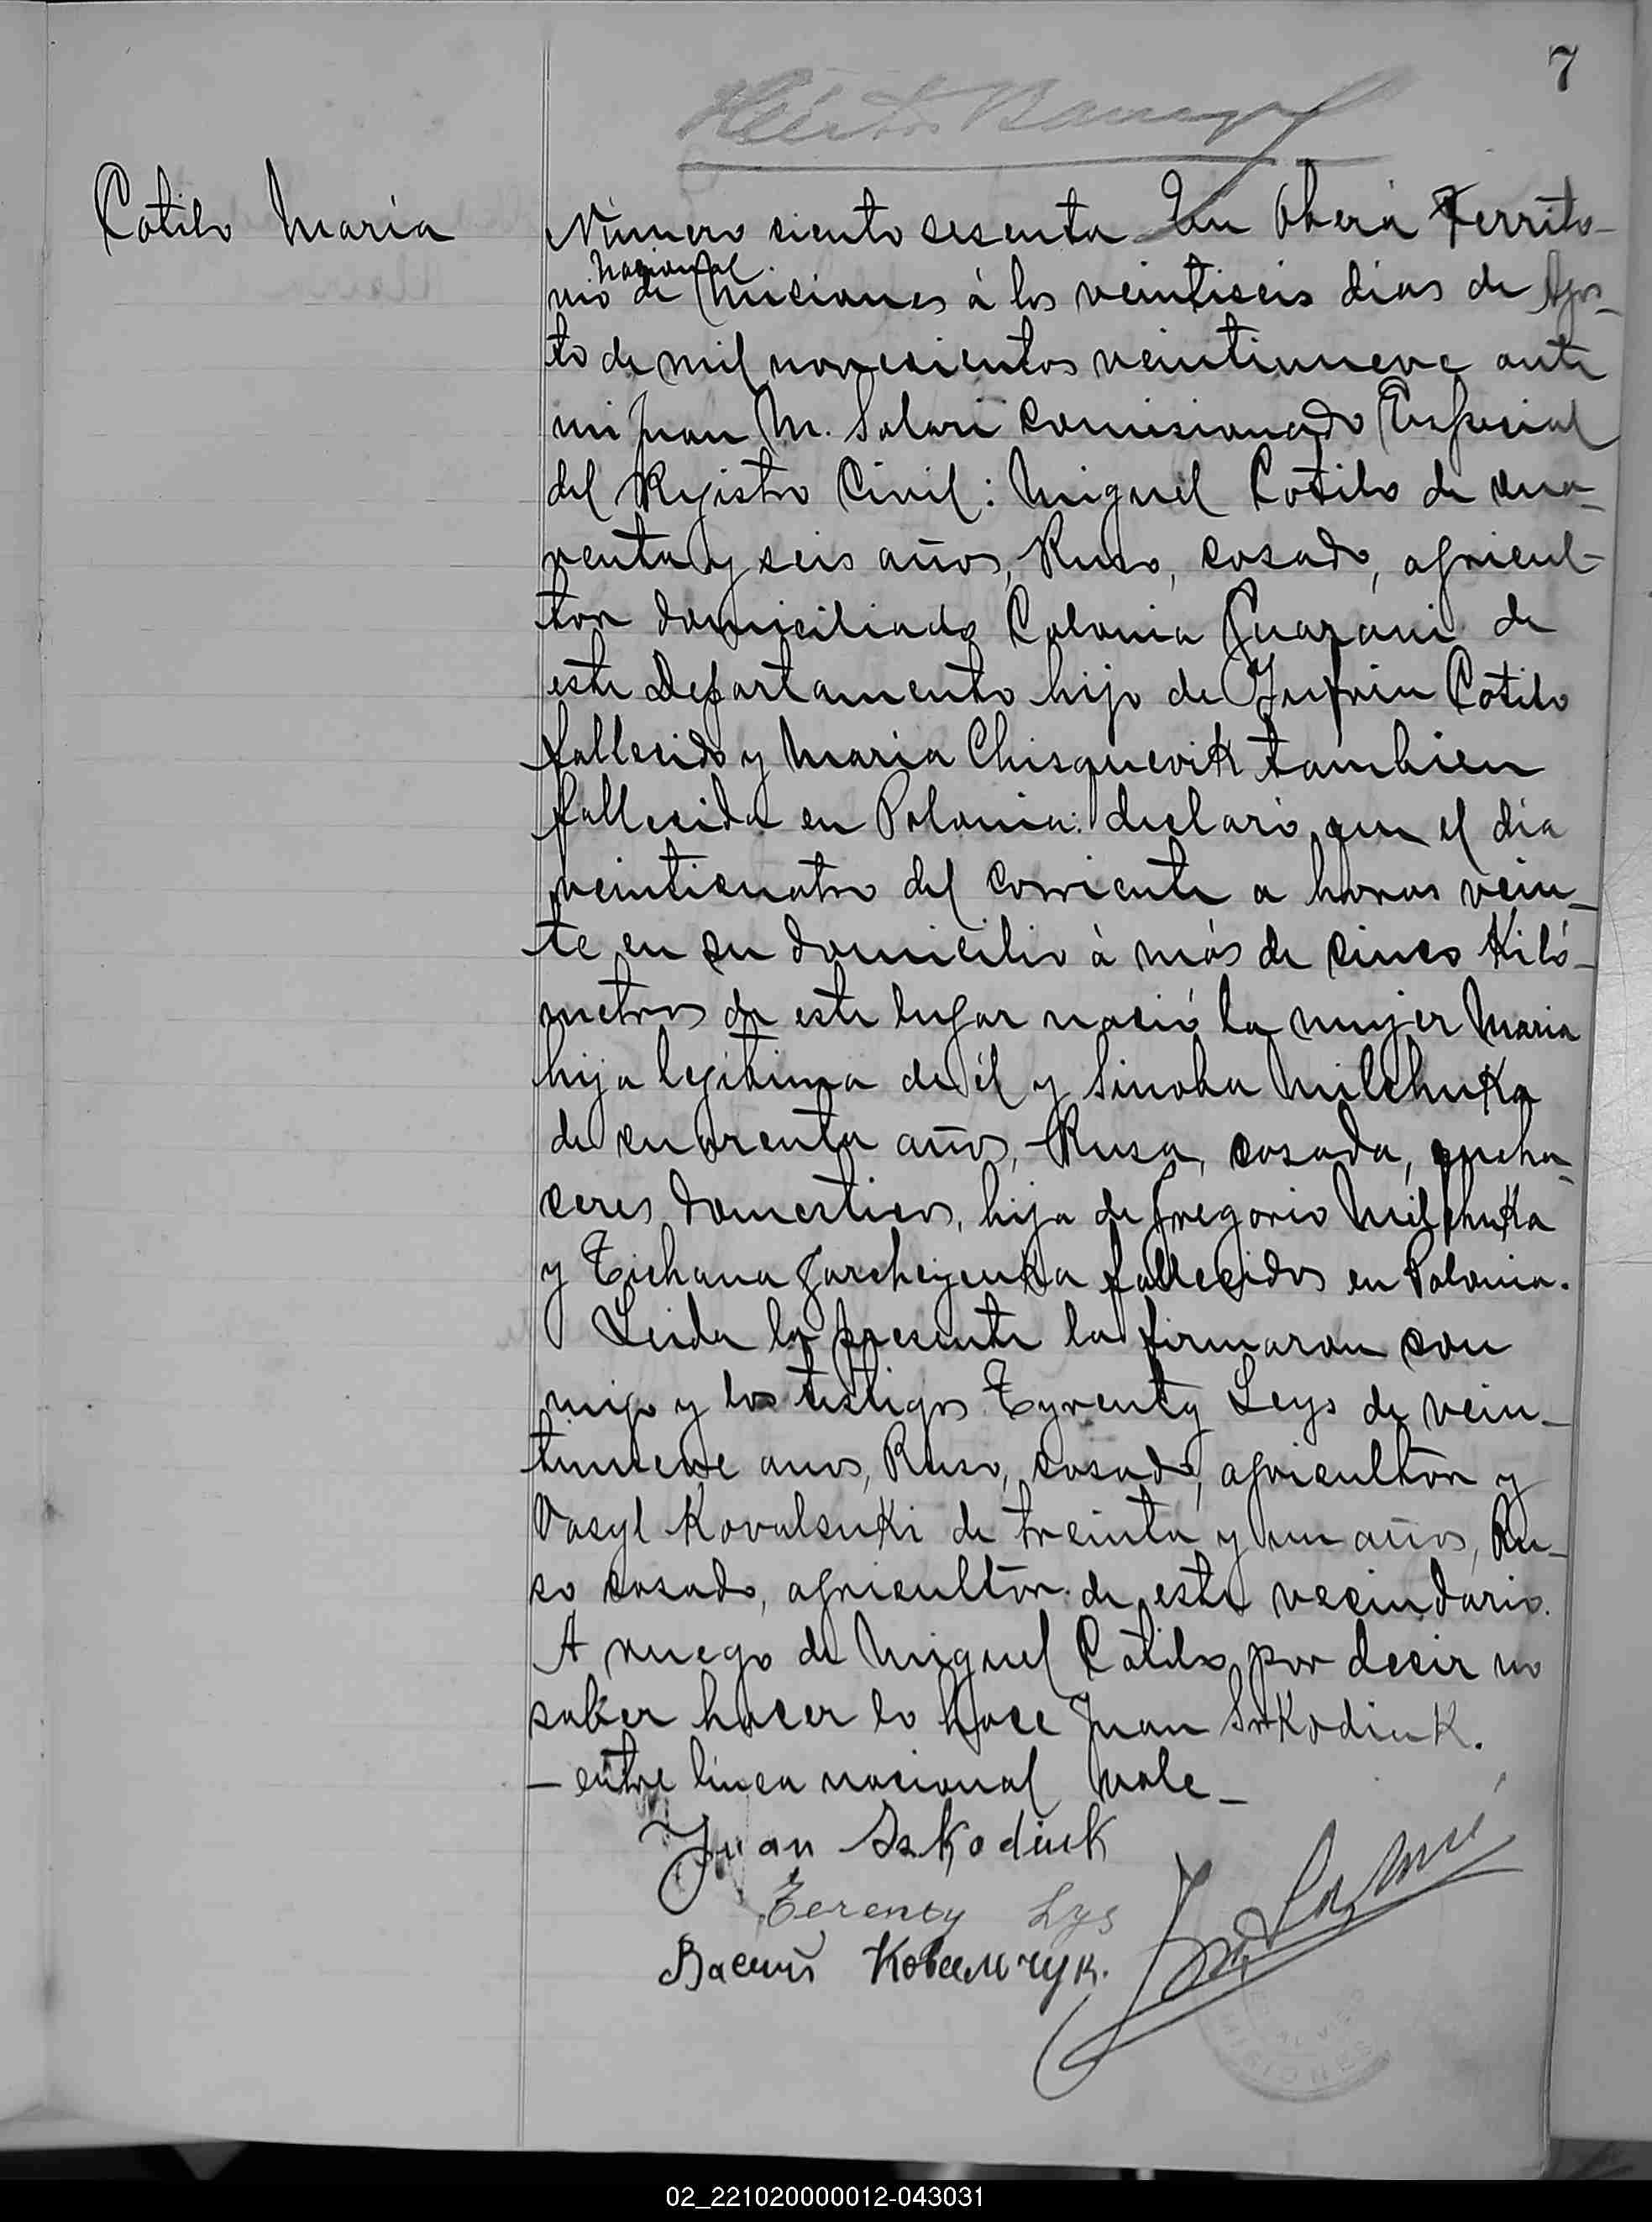 7
Cotilo Maria
Número ciento sesenta En Oberá Territo-
nacional
rio de Misiones á los veintiseis dias de Agos-
to de mil novecientos veintinueve ante
mi Juan M. Solari Comisionado Especial
del Registro Civil: Miguel Cotilo de cua-
renta y seis años, Ruso, casado, agricul-
tor domiciliado Colonia Guarani de
este Departamento hijo de Cotilo
fallecido y Maria Chisquevik tambien
fallecida en Polonia: declaró que el dia
veinticuatro del corriente a horas vein-
te en su domicilio á más de cinco Kiló-
metros de este lugar nació la mujer Maria
hija legitima de él y Sinoha Milchuka
de cuarenta años, Rusa, casada, queha-
ceres domesticos, hija de Gregorio Milchuka
y Tichana fallecidos en Polonia.
Leida la presente la firmaron con
migo y los testigos Tyrenty Leys de vein-
tinueve anos, Ruso, casado, agricultor y
Vasyl Kovalsuki de treinta y un años, Ru-
so casado, agricultor de este vecindario.
A ruego de Miguel Cotilo por decir no
saber hacer lo hace Juan Szkodiuk.
- entre linea nacional vale -
Juan Szkodiuk
Terenty Lys
Василь Ковальчук.
MISIONES
02_221020000012-043031